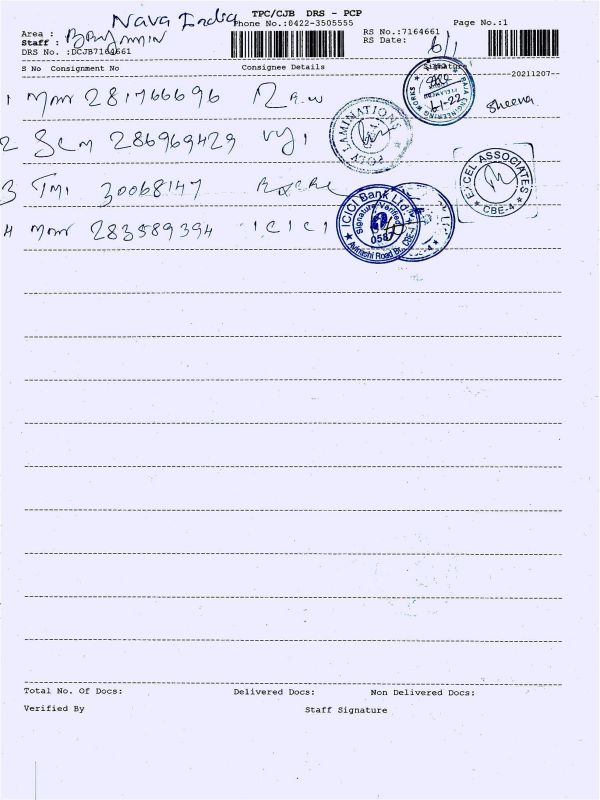 Nava India
TPC/CJB DRS - PCP
Phone No.:0422-3505555
Page No.:1
Area :
Staff : Benjamin
DRS No. :DCJB7164661
RS No.:7164661
RS Date: 6/1
S No Consignment No Consignee Details Signature
20211207--
1 281766696
6-1-22 Sheena
RAJA ENGINEERING WORKS
2 286969429
POLY LAMINATIONS
3 30068147
EXCEL ASSOCIATES
* CBE-4 *
4 283589394 ICICI
ICICI Bank Ltd.
Signature Verified
Avinashi Road Br., CBE-4
Total No. Of Docs: Delivered Docs: Non Delivered Docs:
Verified By Staff Signature